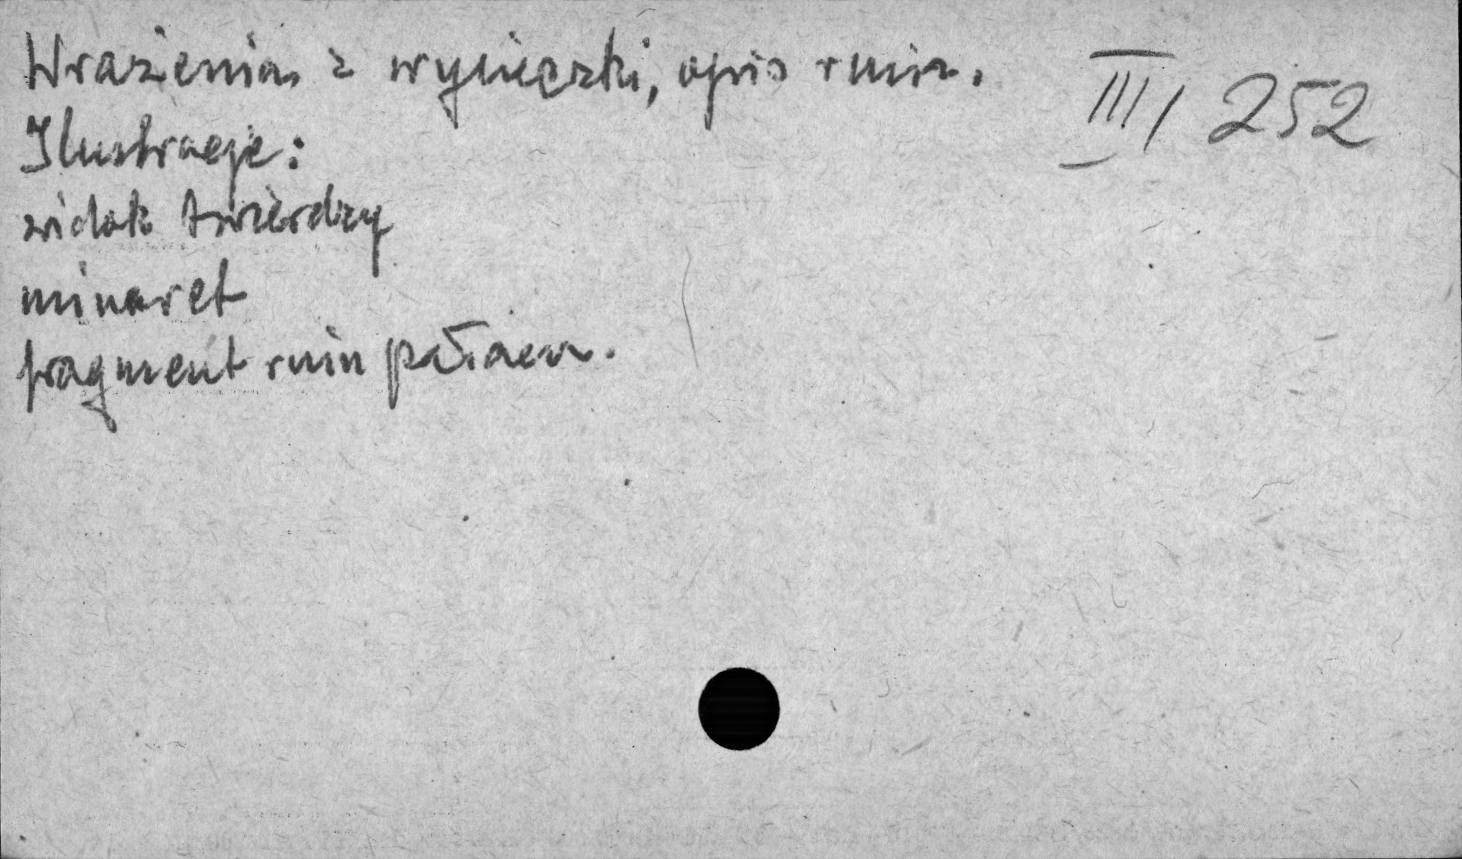 Wrażenia z wycieczki, opis ruin. III/252
Ilustracje:
widok twierdzy
minaret
fragment ruin pałacu.